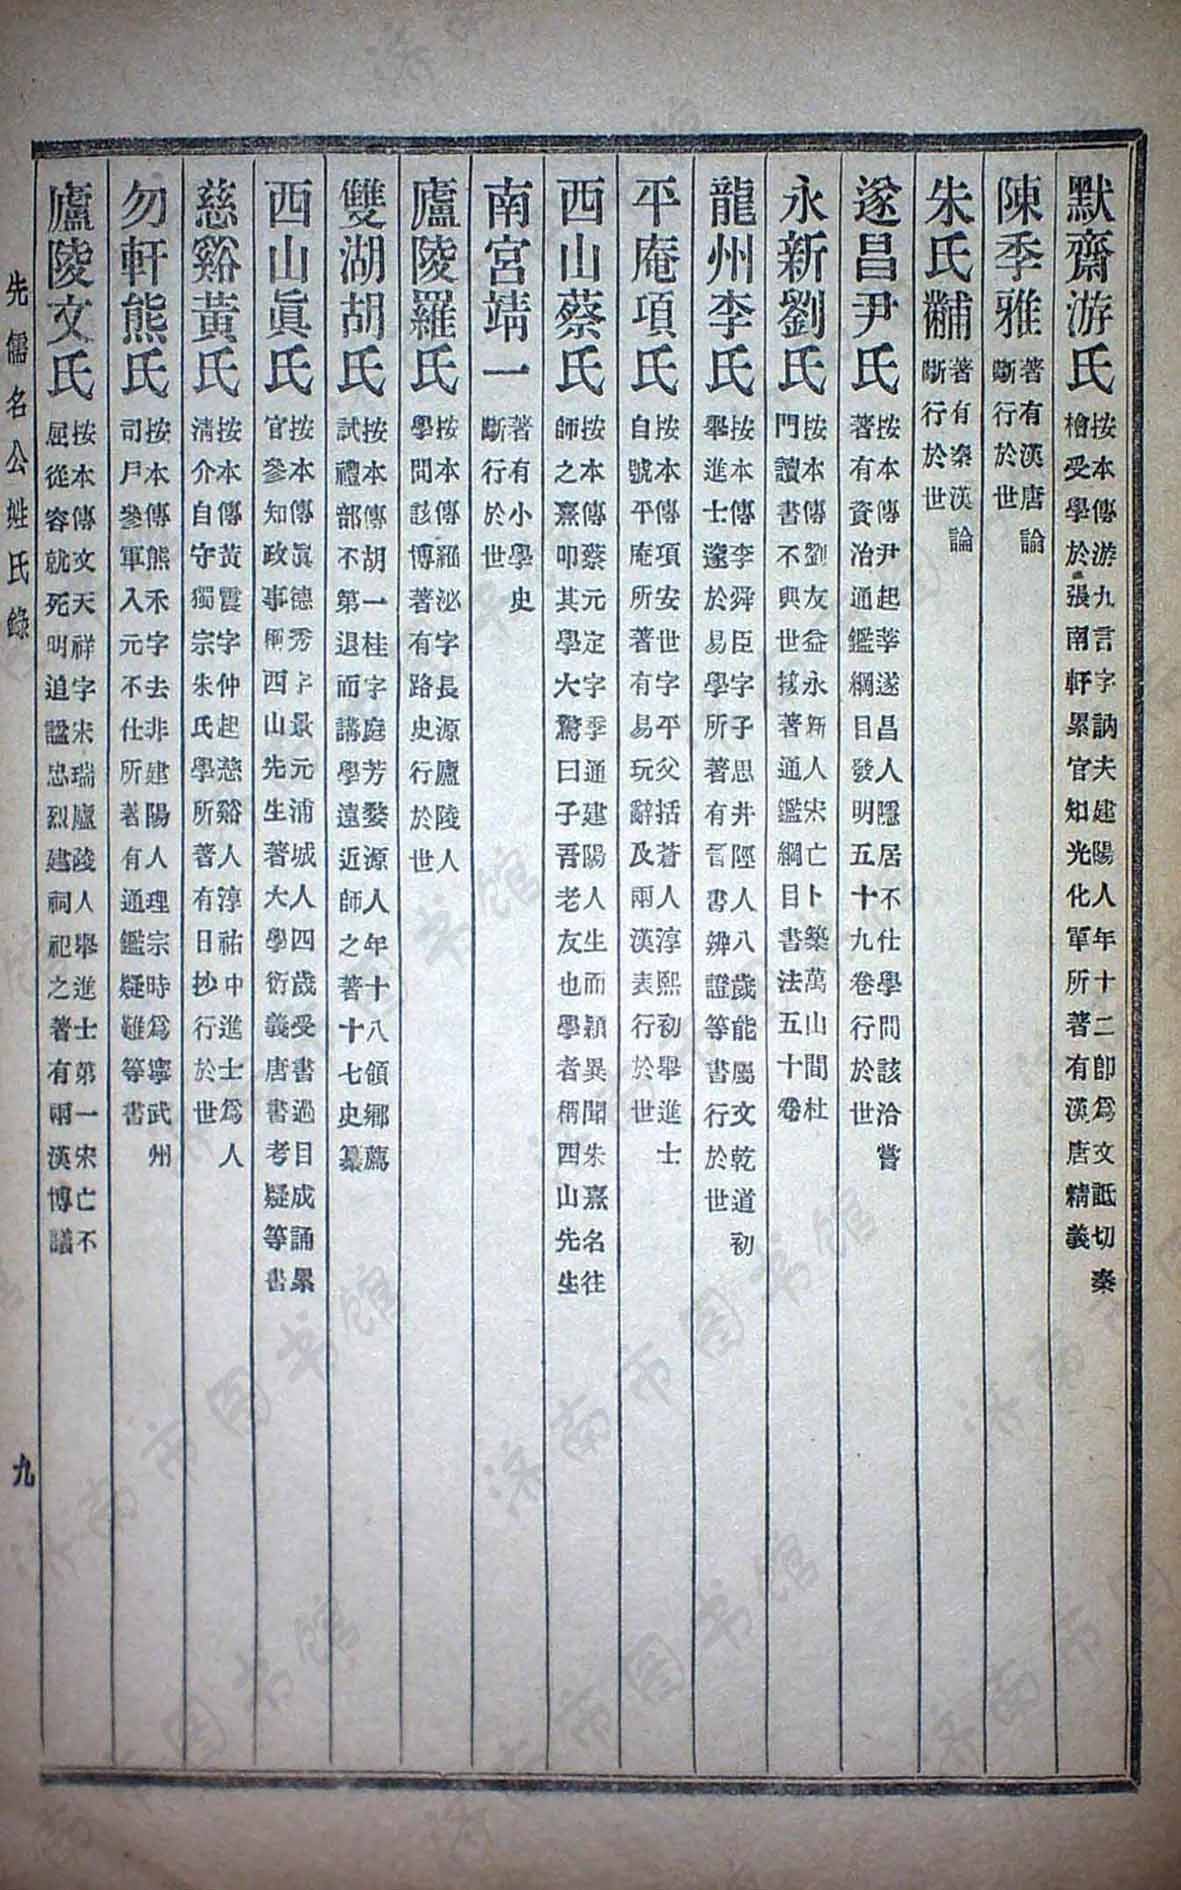 默齋游氏按本傳游九言字訥夫建陽人年十二即爲文詆切秦
檜受學於張南軒累官知光化軍所著有漢唐精義
陳季雅著有漢唐論
斷行於世
朱氏黼著有秦漢論
斷行於世
遂昌尹氏按本傳尹起莘遂昌人隱居不仕學問該洽嘗
著有資治通鑑綱目發明五十九卷行於世
永新劉氏按本傳劉友益永新人宋亡卜築萬山間杜
門讀書不與世接著通鑑綱目書法五十卷
龍州李氏按本傳李舜臣字子思井陘人八歲能屬文乾道初
舉進士邃於易學所著有晉書辨證等書行於世
平庵項氏按本傳項安世字平父括蒼人淳熙初舉進士
自號平庵所著有易玩辭及兩漢表行於世
西山蔡氏按本傳蔡元定字季通建陽人生而穎異聞朱熹名往
師之熹叩其學大驚曰子吾老友也學者稱西山先生
南宮靖一著有小學史
斷行於世
廬陵羅氏按本傳羅泌字長源廬陵人
學問該博著有路史行於世
雙湖胡氏按本傳胡一桂字庭芳婺源人年十八領鄉薦
試禮部不第退而講學遠近師之著十七史纂
西山眞氏按本傳眞德秀字景元浦城人四歲受書過目成誦累
官參知政事稱西山先生著大學衍義唐書考疑等書
慈谿黃氏按本傳黃震字仲起慈谿人淳祐中進士爲人
清介自守獨宗朱氏學所著有日抄行於世
勿軒熊氏按本傳熊禾字去非建陽人理宗時爲寧武州
司戶參軍入元不仕所著有通鑑疑難等書
廬陵文氏按本傳文天祥字宋瑞廬陵人舉進士第一宋亡不
屈從容就死明道諡忠烈建祠祀之著有兩漢博議
先儒名公姓氏錄
九
济南市图书馆